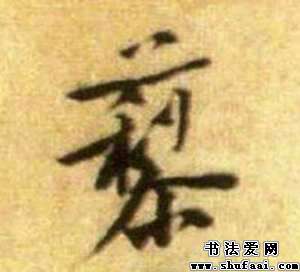 藜
书法爱网
www.shufaai.com